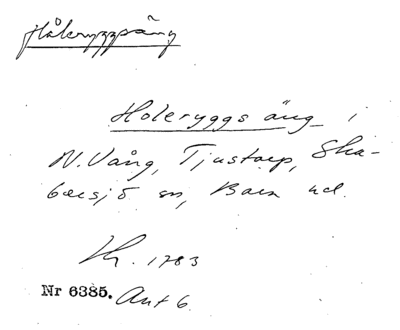 Håleryggsäng
Holeryggs äng i
N. Vång, Tjustorp, Ska-
bersjö sn, Bara hd.
Kr. 1783
Nr 6385. Ant 6.